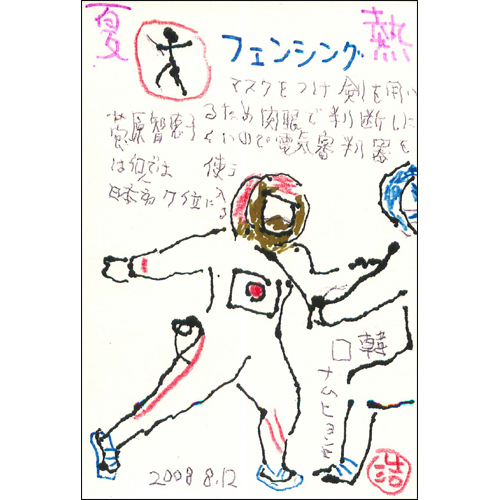 夏 熱
フェンシング
マスクをつけ 剣を用い
るため肉眼で判断しに
くいので電気審判器を
使う
菅原智恵子
は
日本初7位に入る
韓
ナムヒョンヒ
2008 8.12